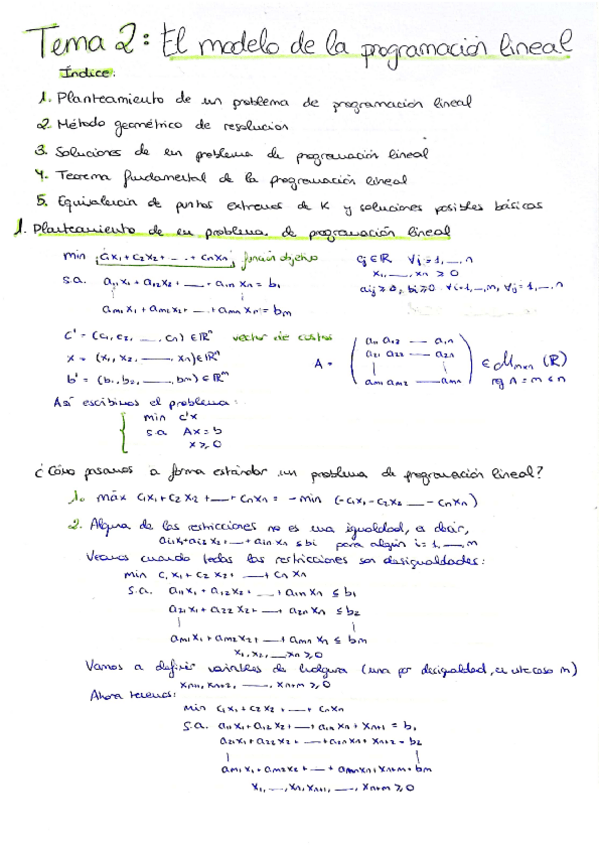 Tema 2: El modelo de la programación lineal
Índice:
1. Planteamiento de un problema de programación lineal
2. Método geométrico de resolución
3. Soluciones de un problema de programación lineal
4. Teorema fundamental de la programación lineal
5. Equivalencia de puntos extremos de K y soluciones posibles básicas
1. Planteamiento de un problema de programación lineal
min c₁x₁ + c₂x₂ + ... + cₙxₙ función objetivo cⱼ ∈ ℝ ∀j = 1, __, n
x₁, __, xₙ ≥ 0
s.a. a₁₁x₁ + a₁₂x₂ + __ + a₁ₙxₙ = b₁ aᵢⱼ ≥ 0, bᵢ ≥ 0 ∀i = 1, __, m, ∀j = 1, __, n
aₘ₁x₁ + aₘ₂x₂ + __ + aₘₙxₙ = bₘ
c' = (c₁, c₂, __, cₙ) ∈ ℝⁿ vector de costes
x = (x₁, x₂, __, xₙ) ∈ ℝⁿ
b' = (b₁, b₂, __, bₘ) ∈ ℝᵐ
A = ( a₁₁ a₁₂ __ a₁ₙ
a₂₁ a₂₂ __ a₂ₙ
aₘ₁ aₘ₂ __ aₘₙ ) ∈ Mₘₓₙ (ℝ)
rg A = m < n
Así escribimos el problema:
min c'x
s.a Ax = b
x ≥ 0
¿Cómo pasamos a forma estándar un problema de programación lineal?
1. máx c₁x₁ + c₂x₂ + __ + cₙxₙ = - min (-c₁x₁ - c₂x₂ __ - cₙxₙ)
2. Alguna de las restricciones no es una igualdad, es decir,
aᵢ₁x₁ + aᵢ₂x₂ + __ + aᵢₙxₙ ≤ bᵢ para algún i = 1, __, m
Veamos cuando todas las restricciones son desigualdades:
min c₁x₁ + c₂x₂ + __ + cₙxₙ
s.a. a₁₁x₁ + a₁₂x₂ + __ + a₁ₙxₙ ≤ b₁
a₂₁x₁ + a₂₂x₂ + __ + a₂ₙxₙ ≤ b₂
aₘ₁x₁ + aₘ₂x₂ + __ + aₘₙxₙ ≤ bₘ
x₁, x₂, __ xₙ ≥ 0
Vamos a definir variables de holgura (una por desigualdad, en este caso m)
xₙ₊₁, xₙ₊₂, __, xₙ₊ₘ ≥ 0
Ahora tenemos:
min c₁x₁ + c₂x₂ + __ + cₙxₙ
s.a. a₁₁x₁ + a₁₂x₂ + __ + a₁ₙxₙ + xₙ₊₁ = b₁
a₂₁x₁ + a₂₂x₂ + __ + a₂ₙxₙ + xₙ₊₂ = b₂
aₘ₁x₁ + aₘ₂x₂ + __ + aₘₙxₙ + xₙ₊ₘ = bₘ
x₁, __, xₙ, xₙ₊₁, __, xₙ₊ₘ ≥ 0